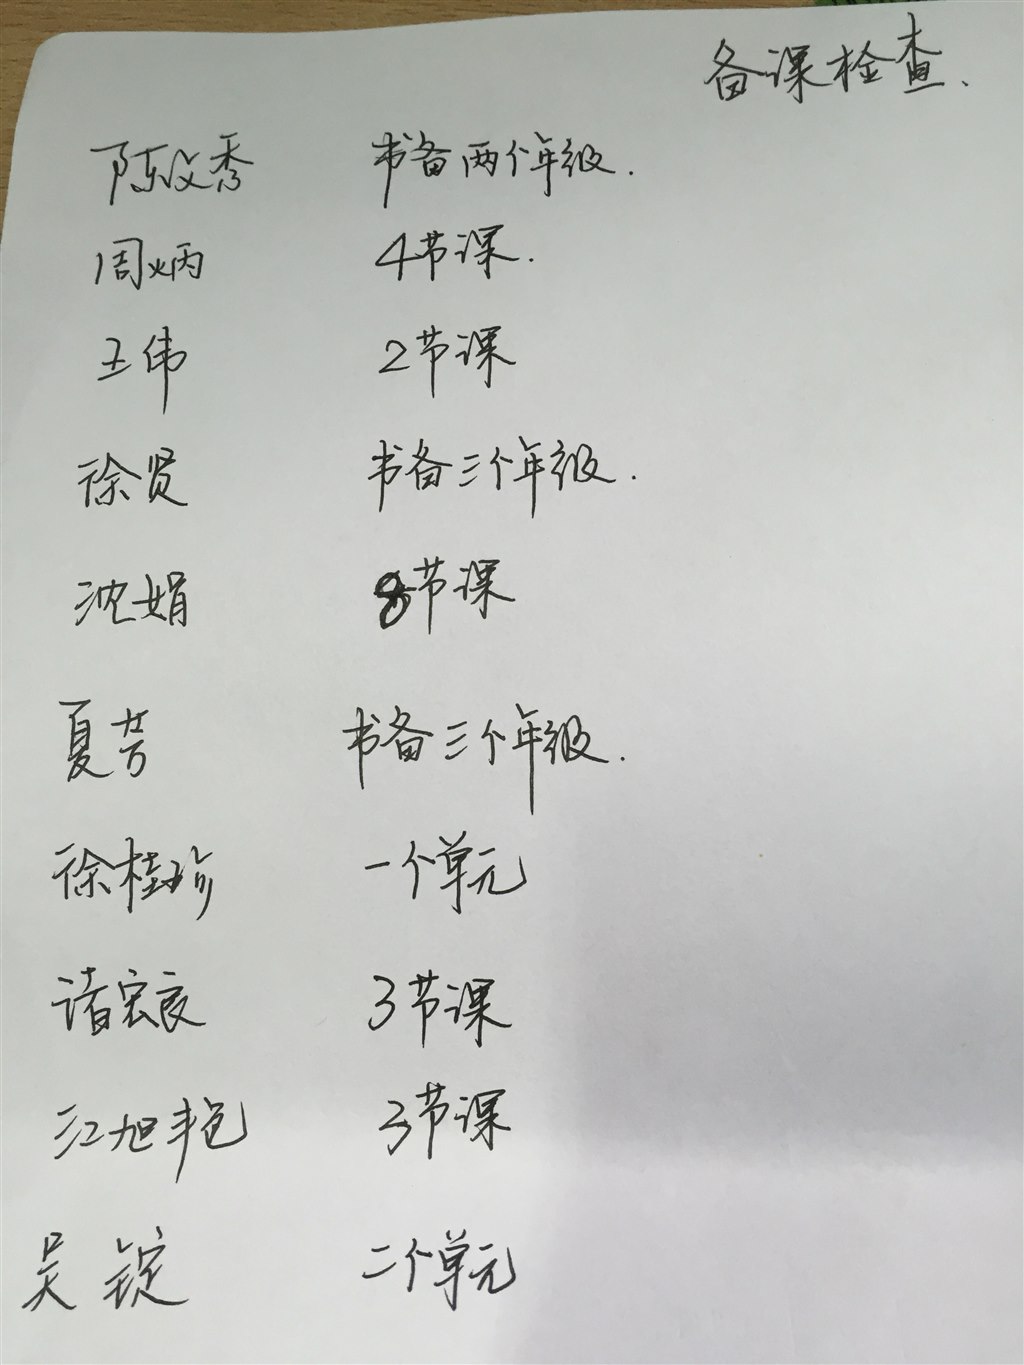 备课检查.
陈文秀 书备两个年级.
周炳 4节课.
王伟 2节课
徐贤 书备三个年级.
沈娟 8节课
夏芳 书备三个年级.
徐桂珍 一个单元
诸宏良 3节课
江旭艳 3节课
吴锭 二个单元